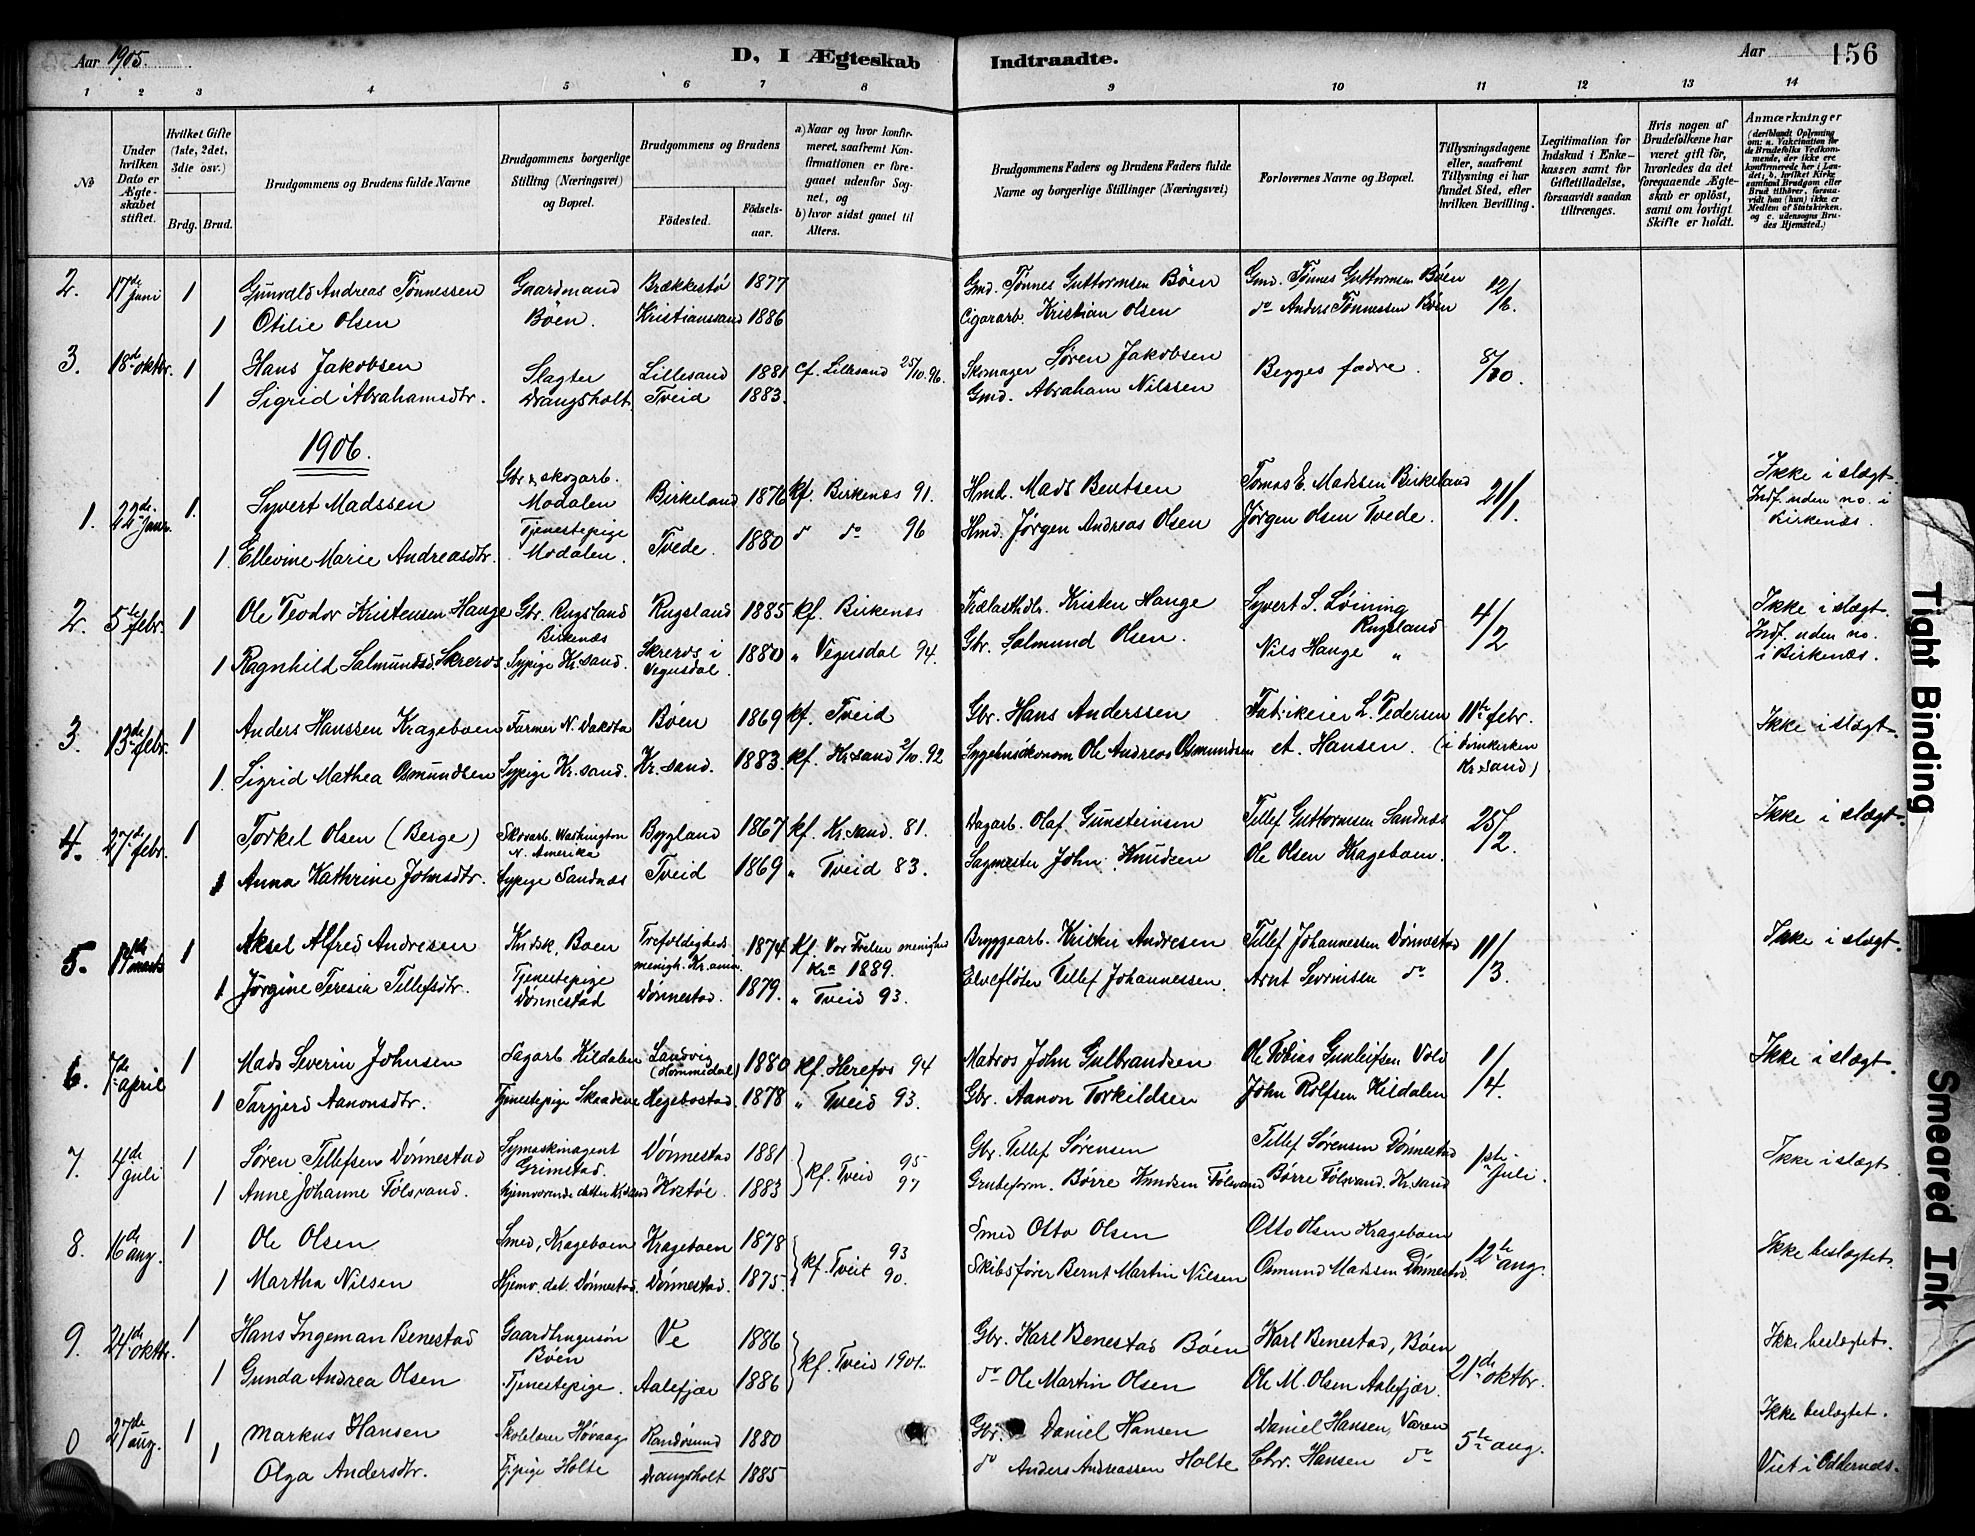 Aar 1905.
D, I Ægteskab Indtraadte.
Aar 156
1 2 3 4 5 6 7 8 9 10 11 12 13 14
No
Under hvilken Dato er Ægteskabet stiftet.
Hvilket Gifte (1ste, 2det, 3die osv.)
Brdg. Brud.
Brudgommens og Brudens fulde Navne
Brudgommens borgerlige Stilling (Næringsvei) og Bopæl.
Brudgommens og Brudens
Fødested.
Fødselsaar.
a) Naar og hvor konfirmeret, saafremt Konfirmationen er foregaaet udenfor Sognet, og
b) hvor sidst gaaet til Alters.
Brudgommens Faders og Brudens Faders fulde Navne og borgerlige Stillinger (Næringsvei)
Forlovernes Navne og Bopæl.
Tillysningsdagene eller, saafremt Tillysning ei har fundet Sted, efter hvilken Bevilling.
Legitimation for Indskud i Enkekassen samt for Giftetilladelse, forsaavidt saadan tiltrænges.
Hvis nogen af Brudefolkene har været gift før, hvorledes da det foregaaende Ægteskab er opløst, samt om lovligt Skifte er holdt.
Anmærkninger
(deriblandt Oplysning om: a. Vakcination for de Brudefolks Vedkommende, der ikke ere konfirmerede her i Landet; b. hvilket Kirkesamfund Brudgom eller Brud tilhører, forsaavidt han (hun) ikke er Medlem af Statskirken, og c. udensogns Brudes Hjemsted.)
2. 17de Juni 1 Gunvald Andreas Tønnessen Gaardmand Brækkestø 1877 Gmd. Tønnes Guttormsen Böen Gmd. Tønnes Guttormsen Böen 12/6.
1 Otilie Olsen Böen. Kristianssand 1886 Cigararb. Kristian Olsen do Anders Tönnessen Böen
3. 18de oktbr. 1 Hans Jakobsen Slagter Lillesand 1881 cf. Lillesand 25/10.96. Skomager Søren Jakobsen Begges fædre. 8/10.
1 Sigrid Abrahamsdtr. Drangsholt Tveid 1883. Gmd. Abraham Nilssen
1906.
1. 22de Janr. 1. Syvert Madssen Gbr & skogarb. Modalen Birkeland 1876 kf. Birkenæs 91. Hmd. Mads Bentsen Tomas E. Madssen Birkeland 21/1. Ikke i slægt. Indf. uden no. i Birkenæs.
1 Ellevine Marie Andreasdtr. Tjenestepige Modalen. Tvede. 1880 do 96 Hmd. Jørgen Andreas Olsen Jørgen Olsen Tvede.
2. 5te febr. 1 Ole Teodor Kristensen Hauge Gbr. Rugsland Birkenæs Rugsland 1885 kf. Birkenæs Trælasthdl. Kristen Hauge Syvert S. Löining Rugsland 4/2 Ikke i slægt. Indf. uden no. i Birkenæs.
1 Ragnhild Salmundsd. Skreros Sypige Kr.sand. Skreros i Vegusdal. 1880 " Vegusdal 94. Gbr. Salmund Olsen. Nils Hauge "
3. 13de febr. 1 Anders Hanssen Krageboen Farmer N. Dakota Böen 1869 kf. Tveid Gbr. Hans Anderssen Fabrikeier L. Pedersen 11te febr. Ikke i slægt.
1. Sigrid Mathea Osmundsen Sypige Kr.sand. Kr.sand. 1883. kf. Kr.sand 2/10.92 Sygehusökonom Ole Andreas Osmundsen et. Hansen. (i domkirken Kr.sand)
4. 27de febr. 1 Torkel Olsen (Berge) Skovarb. Washington N. Amerika Bygland 1867 kf. Kr.sand. 81. Dagarb. Olaf Gunsteinsen Tellef Guttormsen Sandnæs 25/2. Ikke i slægt.
1 Anna Kathrine Johnsdtr. Sypige Sandnæs Tveid 1869 " Tveid 83. Sagmester John Knudsen Ole Olsen Krageboen.
5. marts 1 Aksel Alfred Andresen Kndsk. Boen Trefoldigheds menigh. Kr.ania. 1874 kf. Vor Frelser menighed Kra 1889. Bryggearb. Krister Andresen Tellef Johannessen Dønnestad 11/3. Ikke i slægt.
1 Jørgine Teresia Tellefsdtr. Tjenestepige Dønnestad Dønnestad. 1879. " Tveid 93. Elvefløter Tellef Johannessen. Arnt Severinsen do
6. 7de april 1 Mads Severin Johnsen Sagarb. Kildalen Landvig (Hommedal) 1880 kf. Herefos 94 Matros John Gulbrandsen Ole Tobias Gunleifsen Vole 1/4. Ikke i slægt.
1 Targjerd Aanonsdtr. Tjenestepige Hegebostad. 1878 " Tveid 93. Gbr. Aanon Torkildsen John Rolfsen Kildalen
7. 4de juli 1 Søren Tellefsen Dønnestad Symaskinagent Grimstad. Dønnestad 1881 kf. Tveid 95 Gbr. Tellef Sørensen Tellef Sørensen Dönnestad 1ste Juli. Ikke i slægt.
1 Anne Johanne Fölsvand. 1883 97 Grubeform. Børre Knudsen Følsvand Börre Fölsvand. Kr.sand
8. 16de aug. 1 Ole Olsen Smed, Krageboen Krageboen 1878 kf. Tveit 93 Smed Otto Olsen Otto Olsen Krageboen 12te aug. Ikke beslægtet.
1 Martha Nilsen Hjemv. dat. Dønnestad. Dønnestad. 1875. 90. Skibsfører Bernt Martin Nilsen Osmund Madssen Dönnestad.
9. 24de oktbr. 1 Hans Ingeman Benestad Gaardbrugersön Böen Ve 1886 kf. Tveid 1901. Gbr. Karl Benestad Böen Karl Benestad, Böen 21de oktbr. Ikke beslægtet.
1 Gunda Andrea Olsen Tjenestepige. Aalefjær 1886 do Ole Martin Olsen Ole M. Olsen Aalefjær.
0 27de aug. 1 Markus Hansen Skolelærer Høvaag Randøsund 1880 Gbr. Daniel Hansen Daniel Hansen, Varen 5te aug. Ikke beslægtet.
1 Olga Andersdtr. Tj.pige Holte Drangsholt 1885 do Anders Andreassen Holte Chr. Hansen do Viet i Oddernes.
Tight Binding
Smeared Ink